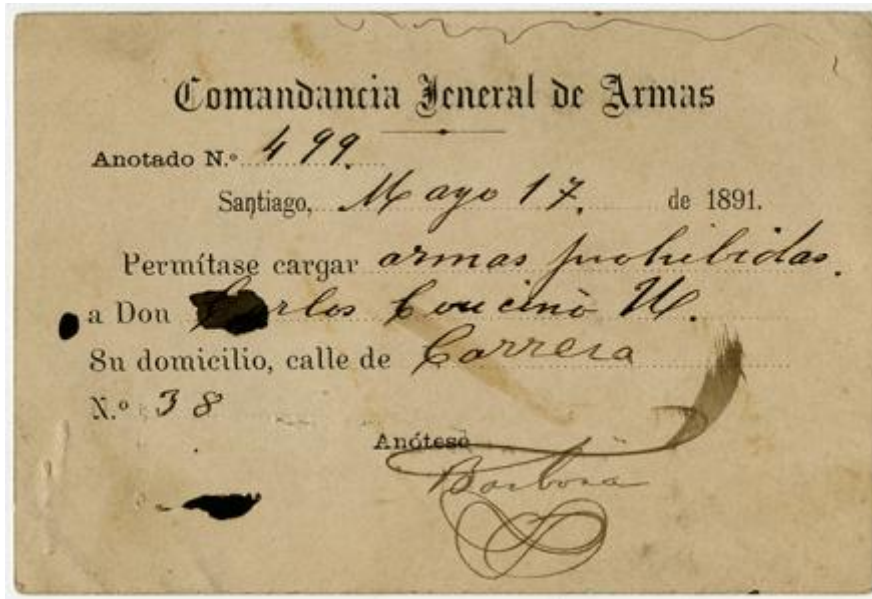 Comandancia Jeneral de Armas
Anotado N.º 499.
Santiago, Mayo 17. de 1891.
Permítase cargar armas prohibidas.
a Don Carlos Cousiño
Su domicilio, calle de Carrera
N.º 38
Anótese
Barbosa